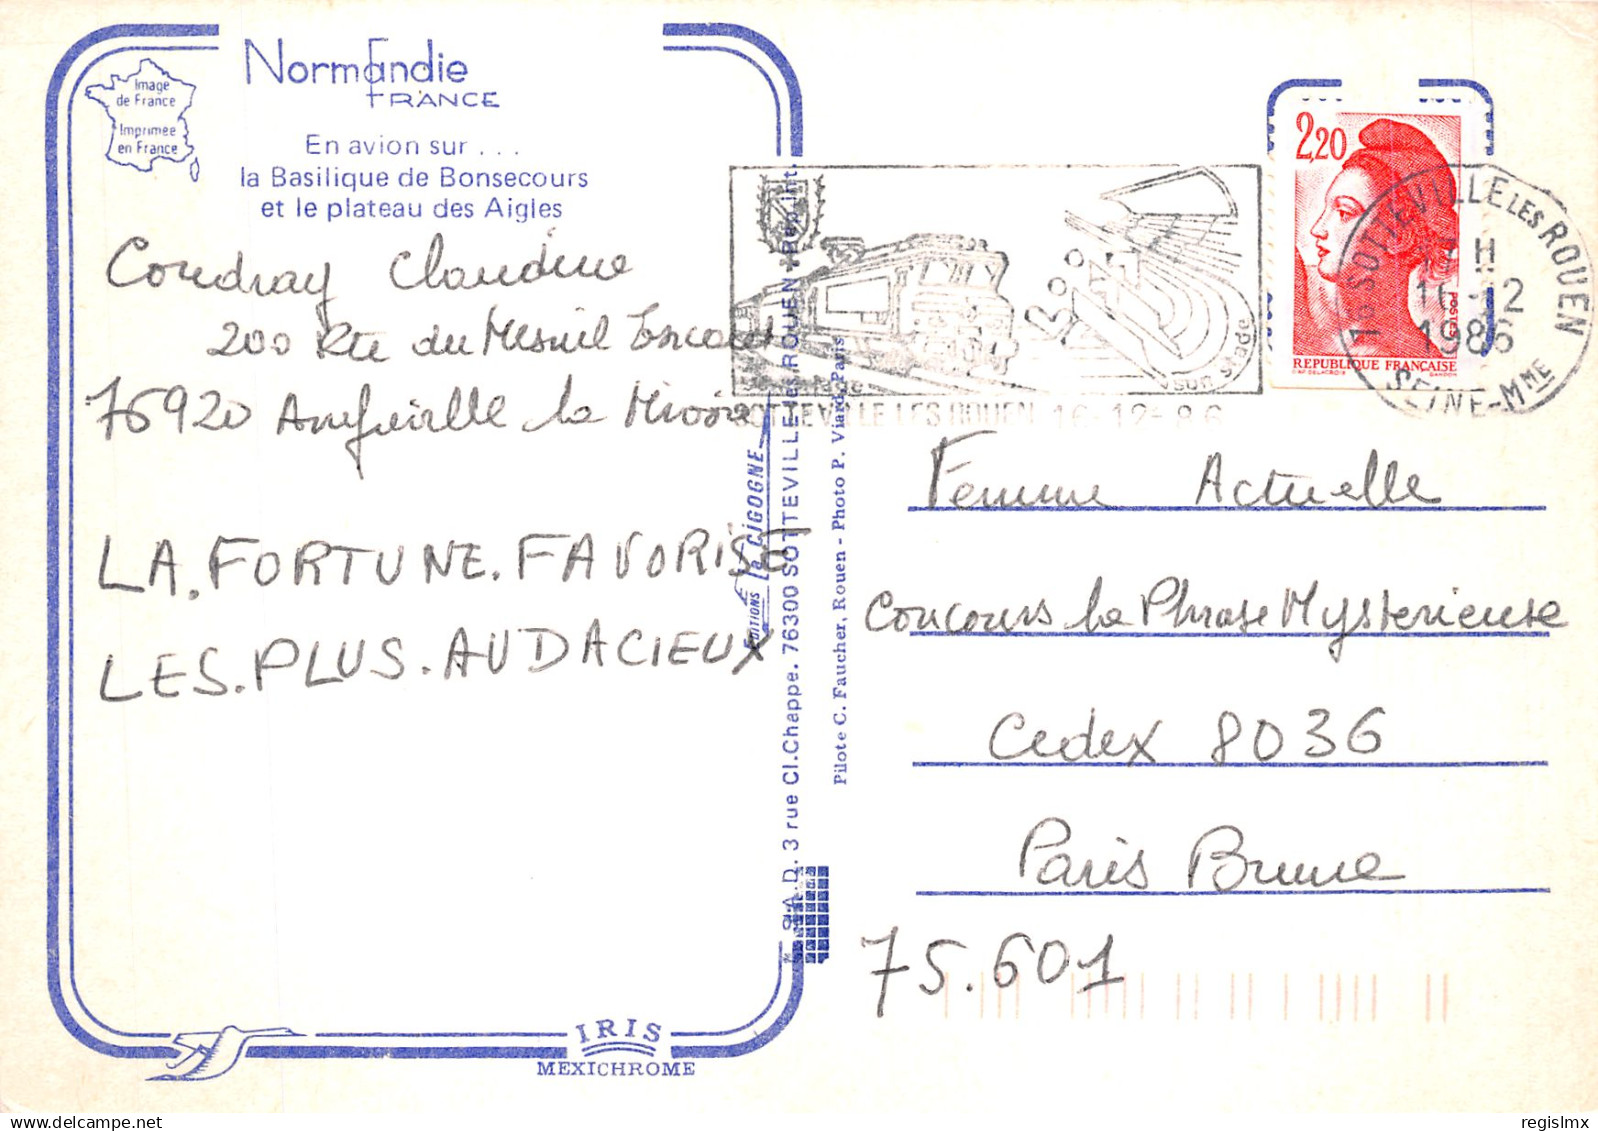 Normandie
FRANCE
Image
de France
Imprimée
en France
En avion sur . . .
la Basilique de Bonsecours
et le plateau des Aigles
Coudray Claudine
200 Rte du Mesnil
76920 Amfreville la Mivoie
LA.FORTUNE.FAVORISE
LES.PLUS.AUDACIEUX
EDITIONS La CIGOGNE
S.A.D. 3 rue Cl.Chappe. 76300 SOTTEVILLE les ROUEN
Pilote C. Faucher, Rouen - Photo P. Viard, Paris
IRIS
MEXICHROME
son sape
SOTTEVILLE LES ROUEN 16-12-86
2,20
POSTES
REPUBLIQUE FRANÇAISE
D'AP. DELACROIX GANDON
76 SOTTEVILLE LES ROUEN
H
16-12
1986
SEINE-MME
Femme Actuelle
Concours la Phrase Mysterieuse
Cedex 8036
Paris Brune
75.601
regislmx